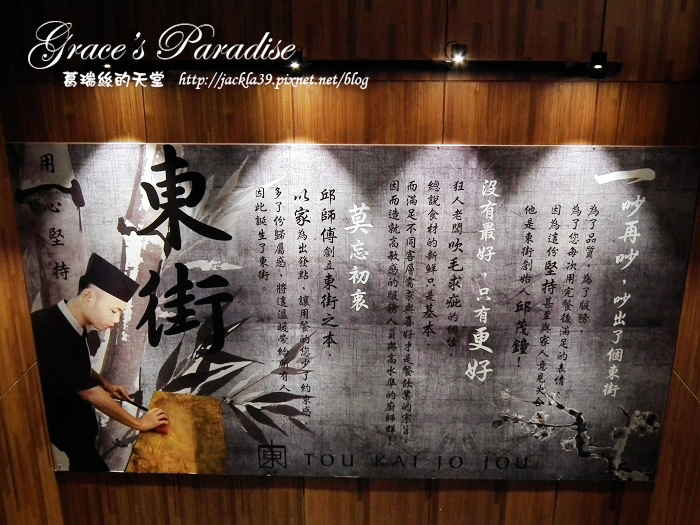 Grace's Paradise
葛瑞絲的天堂 http://jackla39.pixnet.net/blog
一吵再吵，吵出了個東街
為了品質，為了服務，
為了您每次用完餐後滿足的表情，
因為這份堅持甚至與家人意見火合
他是東街創始人 邱茂鐘！
沒有最好，只有更好
狂人老闆吹毛求疵的個性，
總說食材的新鮮只是基本，
而滿足不同客層需求與喜好才是餐飲業的宗旨，
因而造就高敏感的服務人員與高水準的廚師群！
莫忘初衷
邱師傅創立東街之本，
以家為出發點，讓用餐的您少了約束感，
多了份歸屬感，將這溫暖帶給所有人，
因此誕生了東街。
東街
用心堅持
東 TOU KAI JO JOU